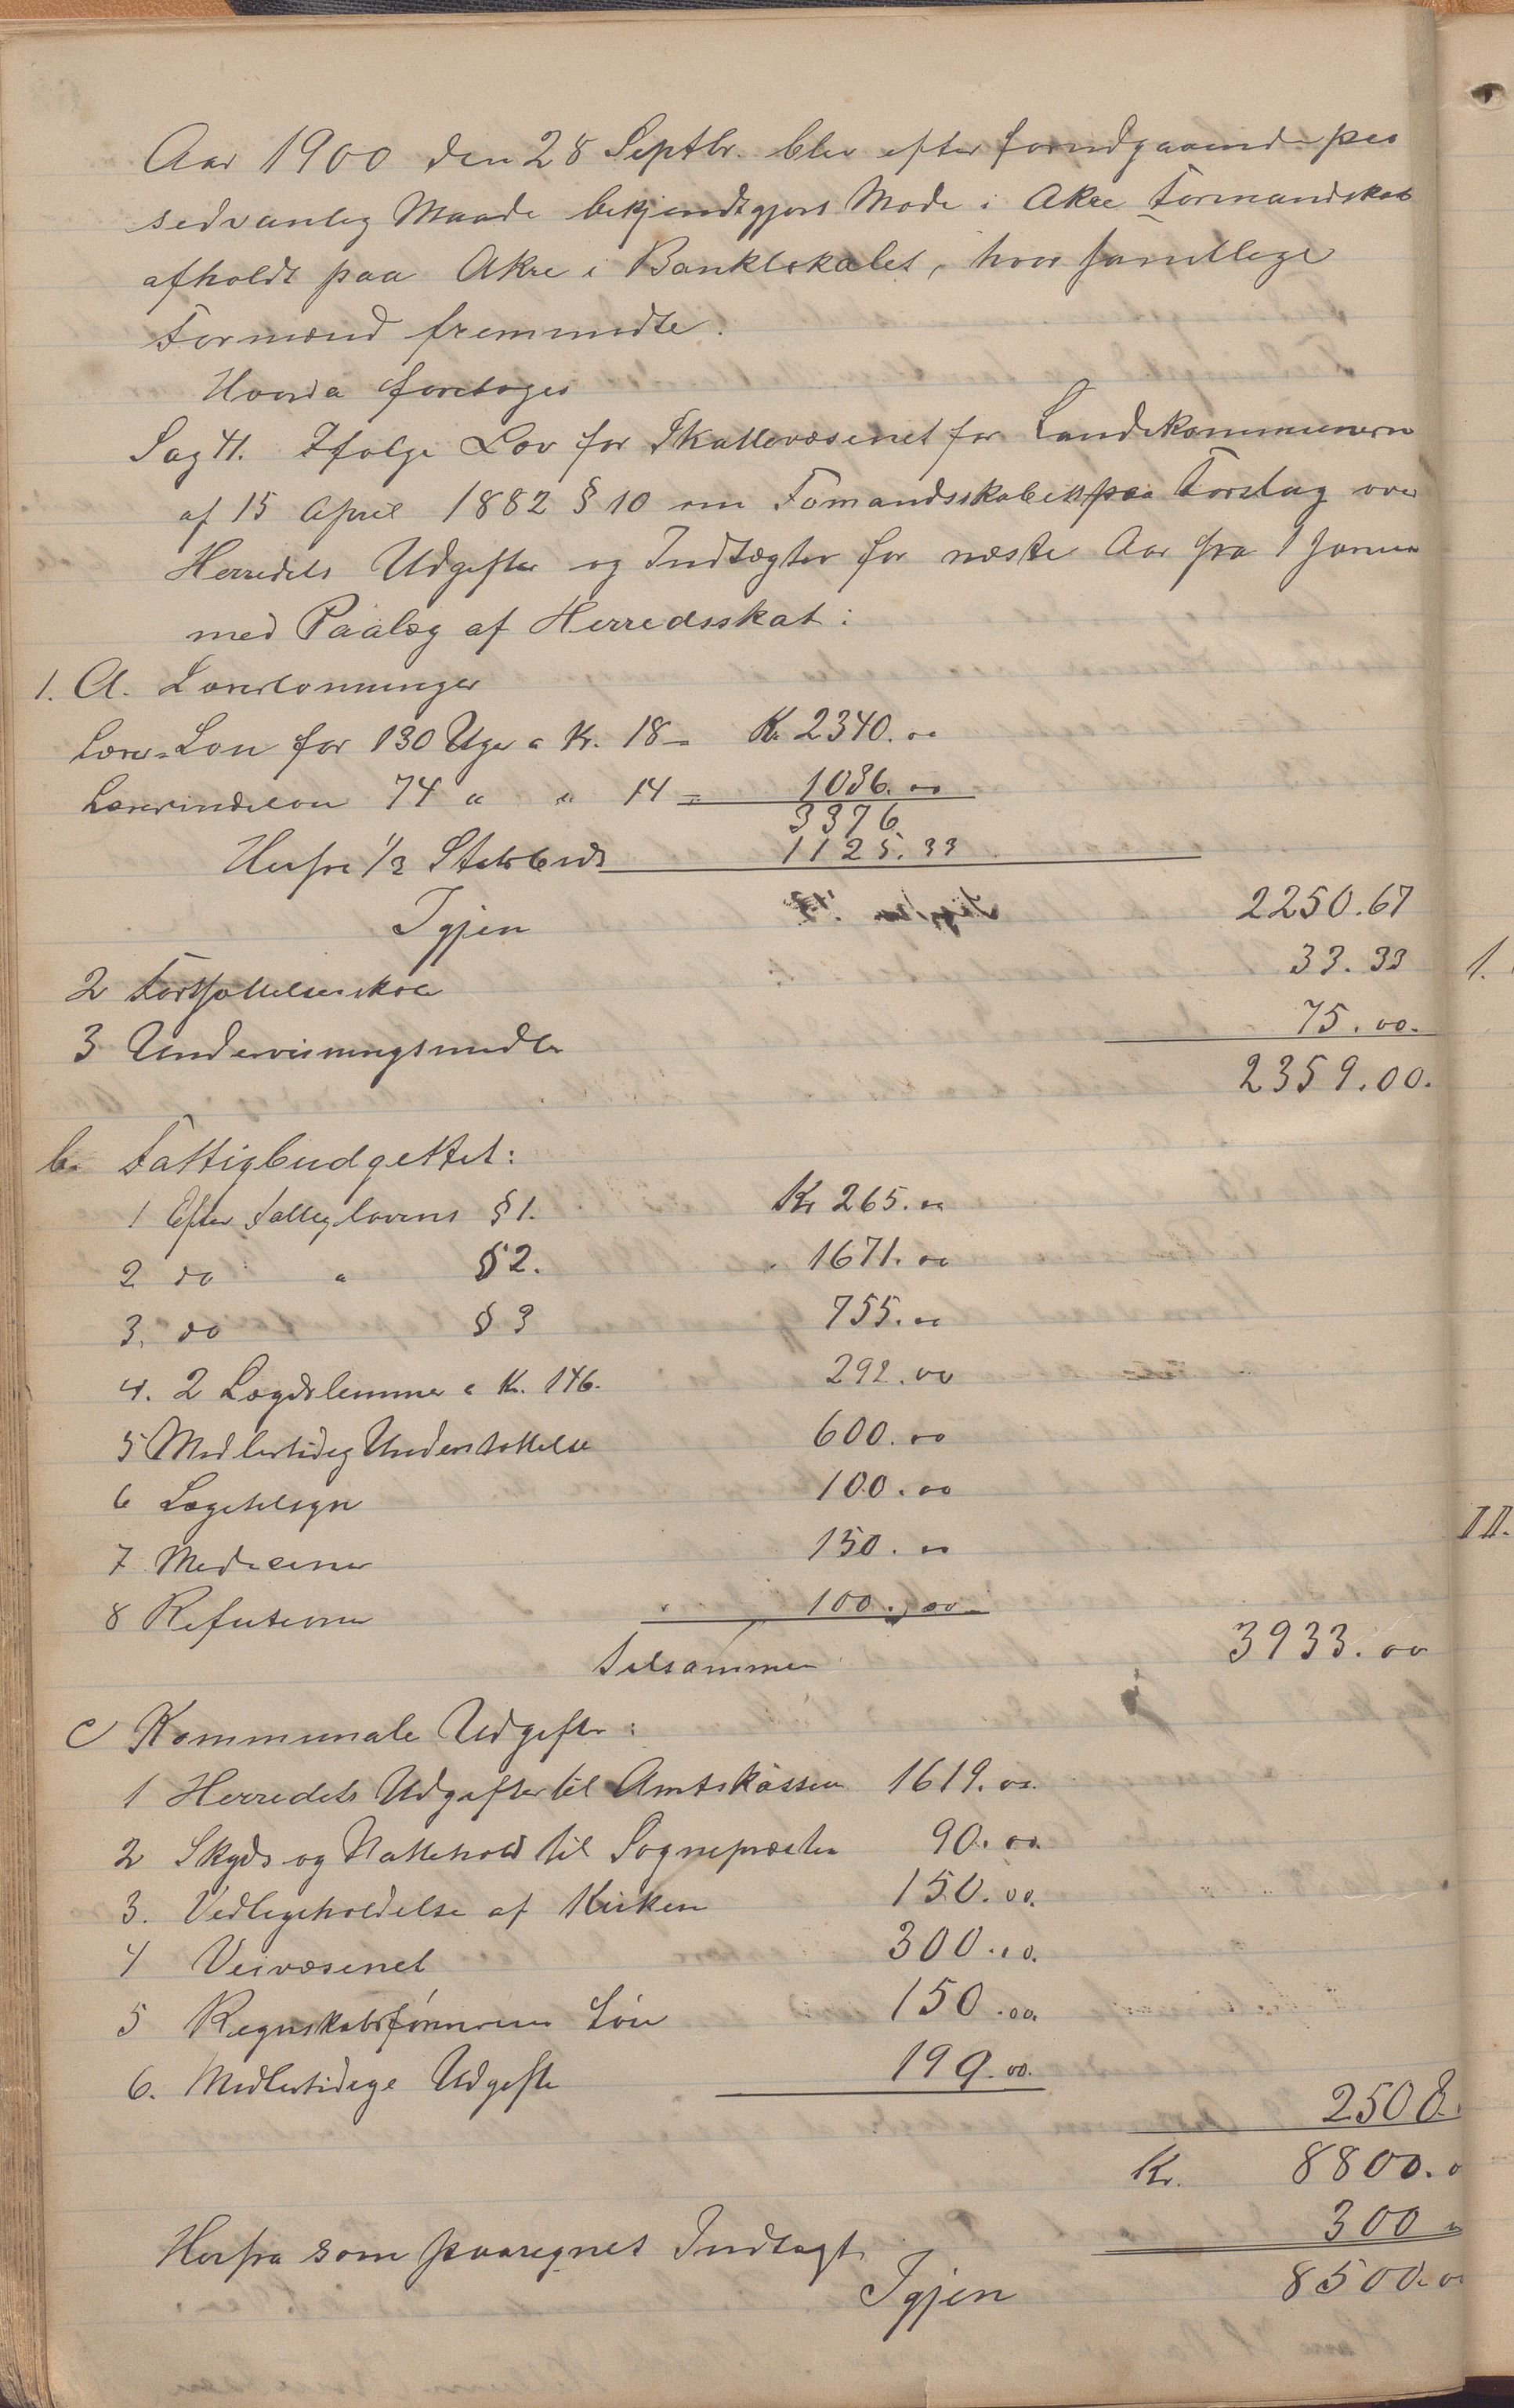 Aar 1900 den 28 Septbr. blev efter forudgaaende paa
sedvanlig Maade bekjendtgjort Mode i Akre Formandskab
afholdt paa Akre i Banklokalet, hvor samtlege
Formænd fremmødte.
Hvorda foretoges
Sag 41. Ifolge Lov for Skattevæsenet for Landkommunern
af 15 April 1882 § 10 om Fomandsskabets Forslag over
Herredets Udgifter og Indtægter for næste Aar fra 1 Januar
med Paalæg af Herredsskat:
1. A. Lærerlonninger
Lærer=Lon for 130 Uger a Kr. 18 = Kr 2340.00
Lærerindelon 74 " " 14 = 1036.00
3376
Herfra 1/3 Statsbidr 1125.33
Igjen 2250.67
2 Fortsættelsesskole 33.33
3 Undervisningsmidler 75.00.
2359.00.
b. Fattigbudgettet:
1 Efter Fattiglovens § 1. Kr 265.00
2 do " § 2. 1671.00
3. do § 3 755.00
4. 2 Lægdslemmer a Kr. 146. 292.00
5 Midlertidig Understottelse 600.00
6 Lægetilsyn 100.00
7 Mediciner 150.00
8 Refusioner 100.00
Tilsammen 3933.00
C Kommunale Udgifter:
1 Herredets Udgifter til Amtskassen 1619.00
2 Skyds og Nattehold til Sognepræsten 90.00
3. Vedligeholdelse af Kirken 150.00.
4 Veivæsenet 300.00.
5 Regnskabsførerens Løn 150.00.
6. Midlertidige Udgifter 199.00.
2508.
Kr. 8800.0
Herfra som paaregnet Indtægt 300
Igjen 8500.0
1.
II.